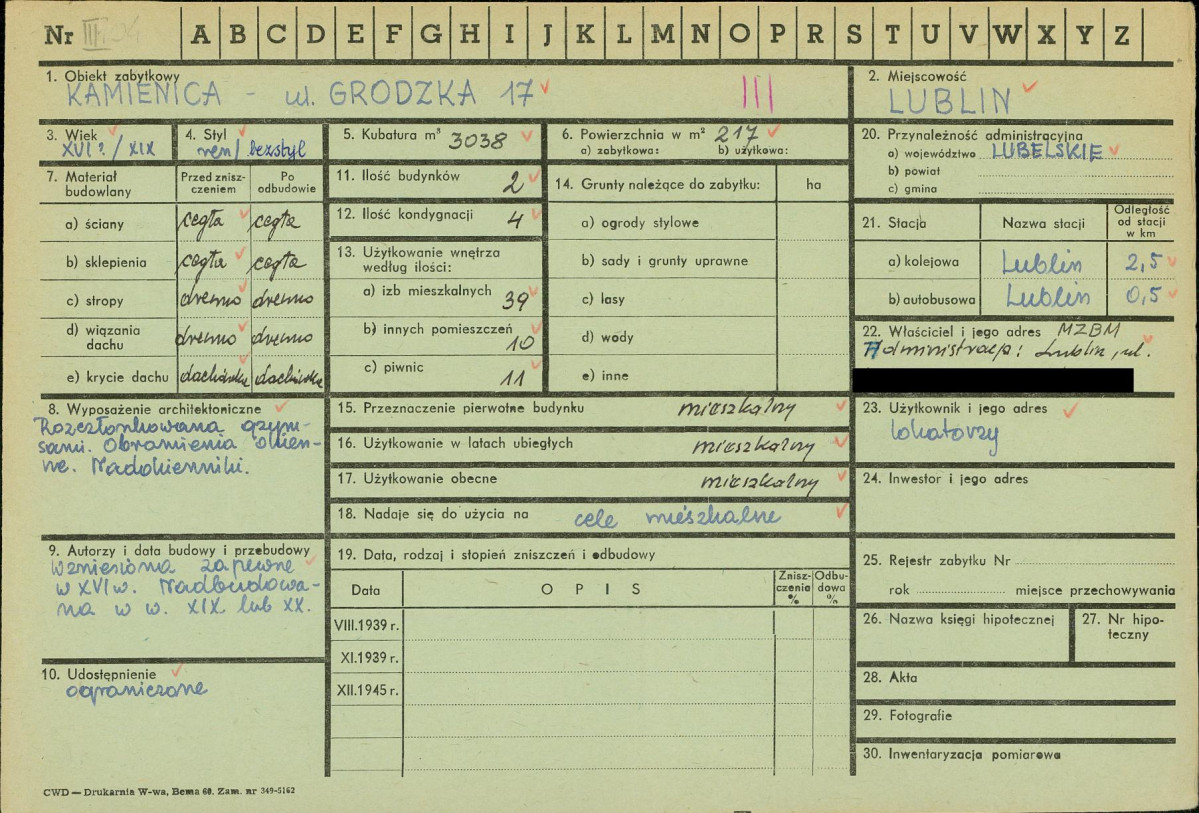 Nr III/04 A B C D E F G H I J K L M N O P R S T U V W X Y Z
1. Obiekt zabytkowy
KAMIENICA - ul. GRODZKA 17
III
2. Miejscowość
LUBLIN
3. Wiek
XVI?/XIX
4. Styl
ren/bezstyl
5. Kubatura m³ 3038
6. Powierzchnia w m² 217
a) zabytkowa: b) użytkowa:
20. Przynależność administracyjna
a) województwo LUBELSKIE
b) powiat
c) gmina
7. Materiał budowlany
Przed zniszczeniem
Po odbudowie
a) ściany cegła cegła
b) sklepienia cegła cegła
c) stropy drewno drewno
d) wiązania dachu drewno drewno
e) krycie dachu dachówka dachówka
11. Ilość budynków 2
12. Ilość kondygnacji 4
13. Użytkowanie wnętrza
według ilości:
a) izb mieszkalnych 39
b) innych pomieszczeń 10
c) piwnic 11
14. Grunty należące do zabytku: ha
a) ogrody stylowe
b) sady i grunty uprawne
c) lasy
d) wody
e) inne
21. Stacja Nazwa stacji Odległość od stacji w km
a) kolejowa Lublin 2,5
b) autobusowa Lublin 0,5
22. Właściciel i jego adres MZBM
Administracja: Lublin, ul.
8. Wyposażenie architektoniczne
Rozczłonkowana gzym-
sami. Obramienia okien-
ne. Nadokienniki.
15. Przeznaczenie pierwotne budynku mieszkalny
16. Użytkowanie w latach ubiegłych mieszkalny
17. Użytkowanie obecne mieszkalny
18. Nadaje się do użycia na cele mieszkalne
23. Użytkownik i jego adres
lokatorzy
24. Inwestor i jego adres
9. Autorzy i data budowy i przebudowy
Wzniesiona zapewne
w XVI w. Nadbudowa-
na w w. XIX lub XX.
10. Udostępnienie
ograniczone
19. Data, rodzaj i stopień zniszczeń i odbudowy
Data OPIS Zniszczenia % Odbudowa %
VIII.1939 r.
XI.1939 r.
XII.1945 r.
25. Rejestr zabytku Nr
rok miejsce przechowywania
26. Nazwa księgi hipotecznej
27. Nr hipoteczny
28. Akta
29. Fotografie
30. Inwentaryzacja pomiarowa
CWD — Drukarnia W-wa, Bema 60. Zam. nr 349-5162